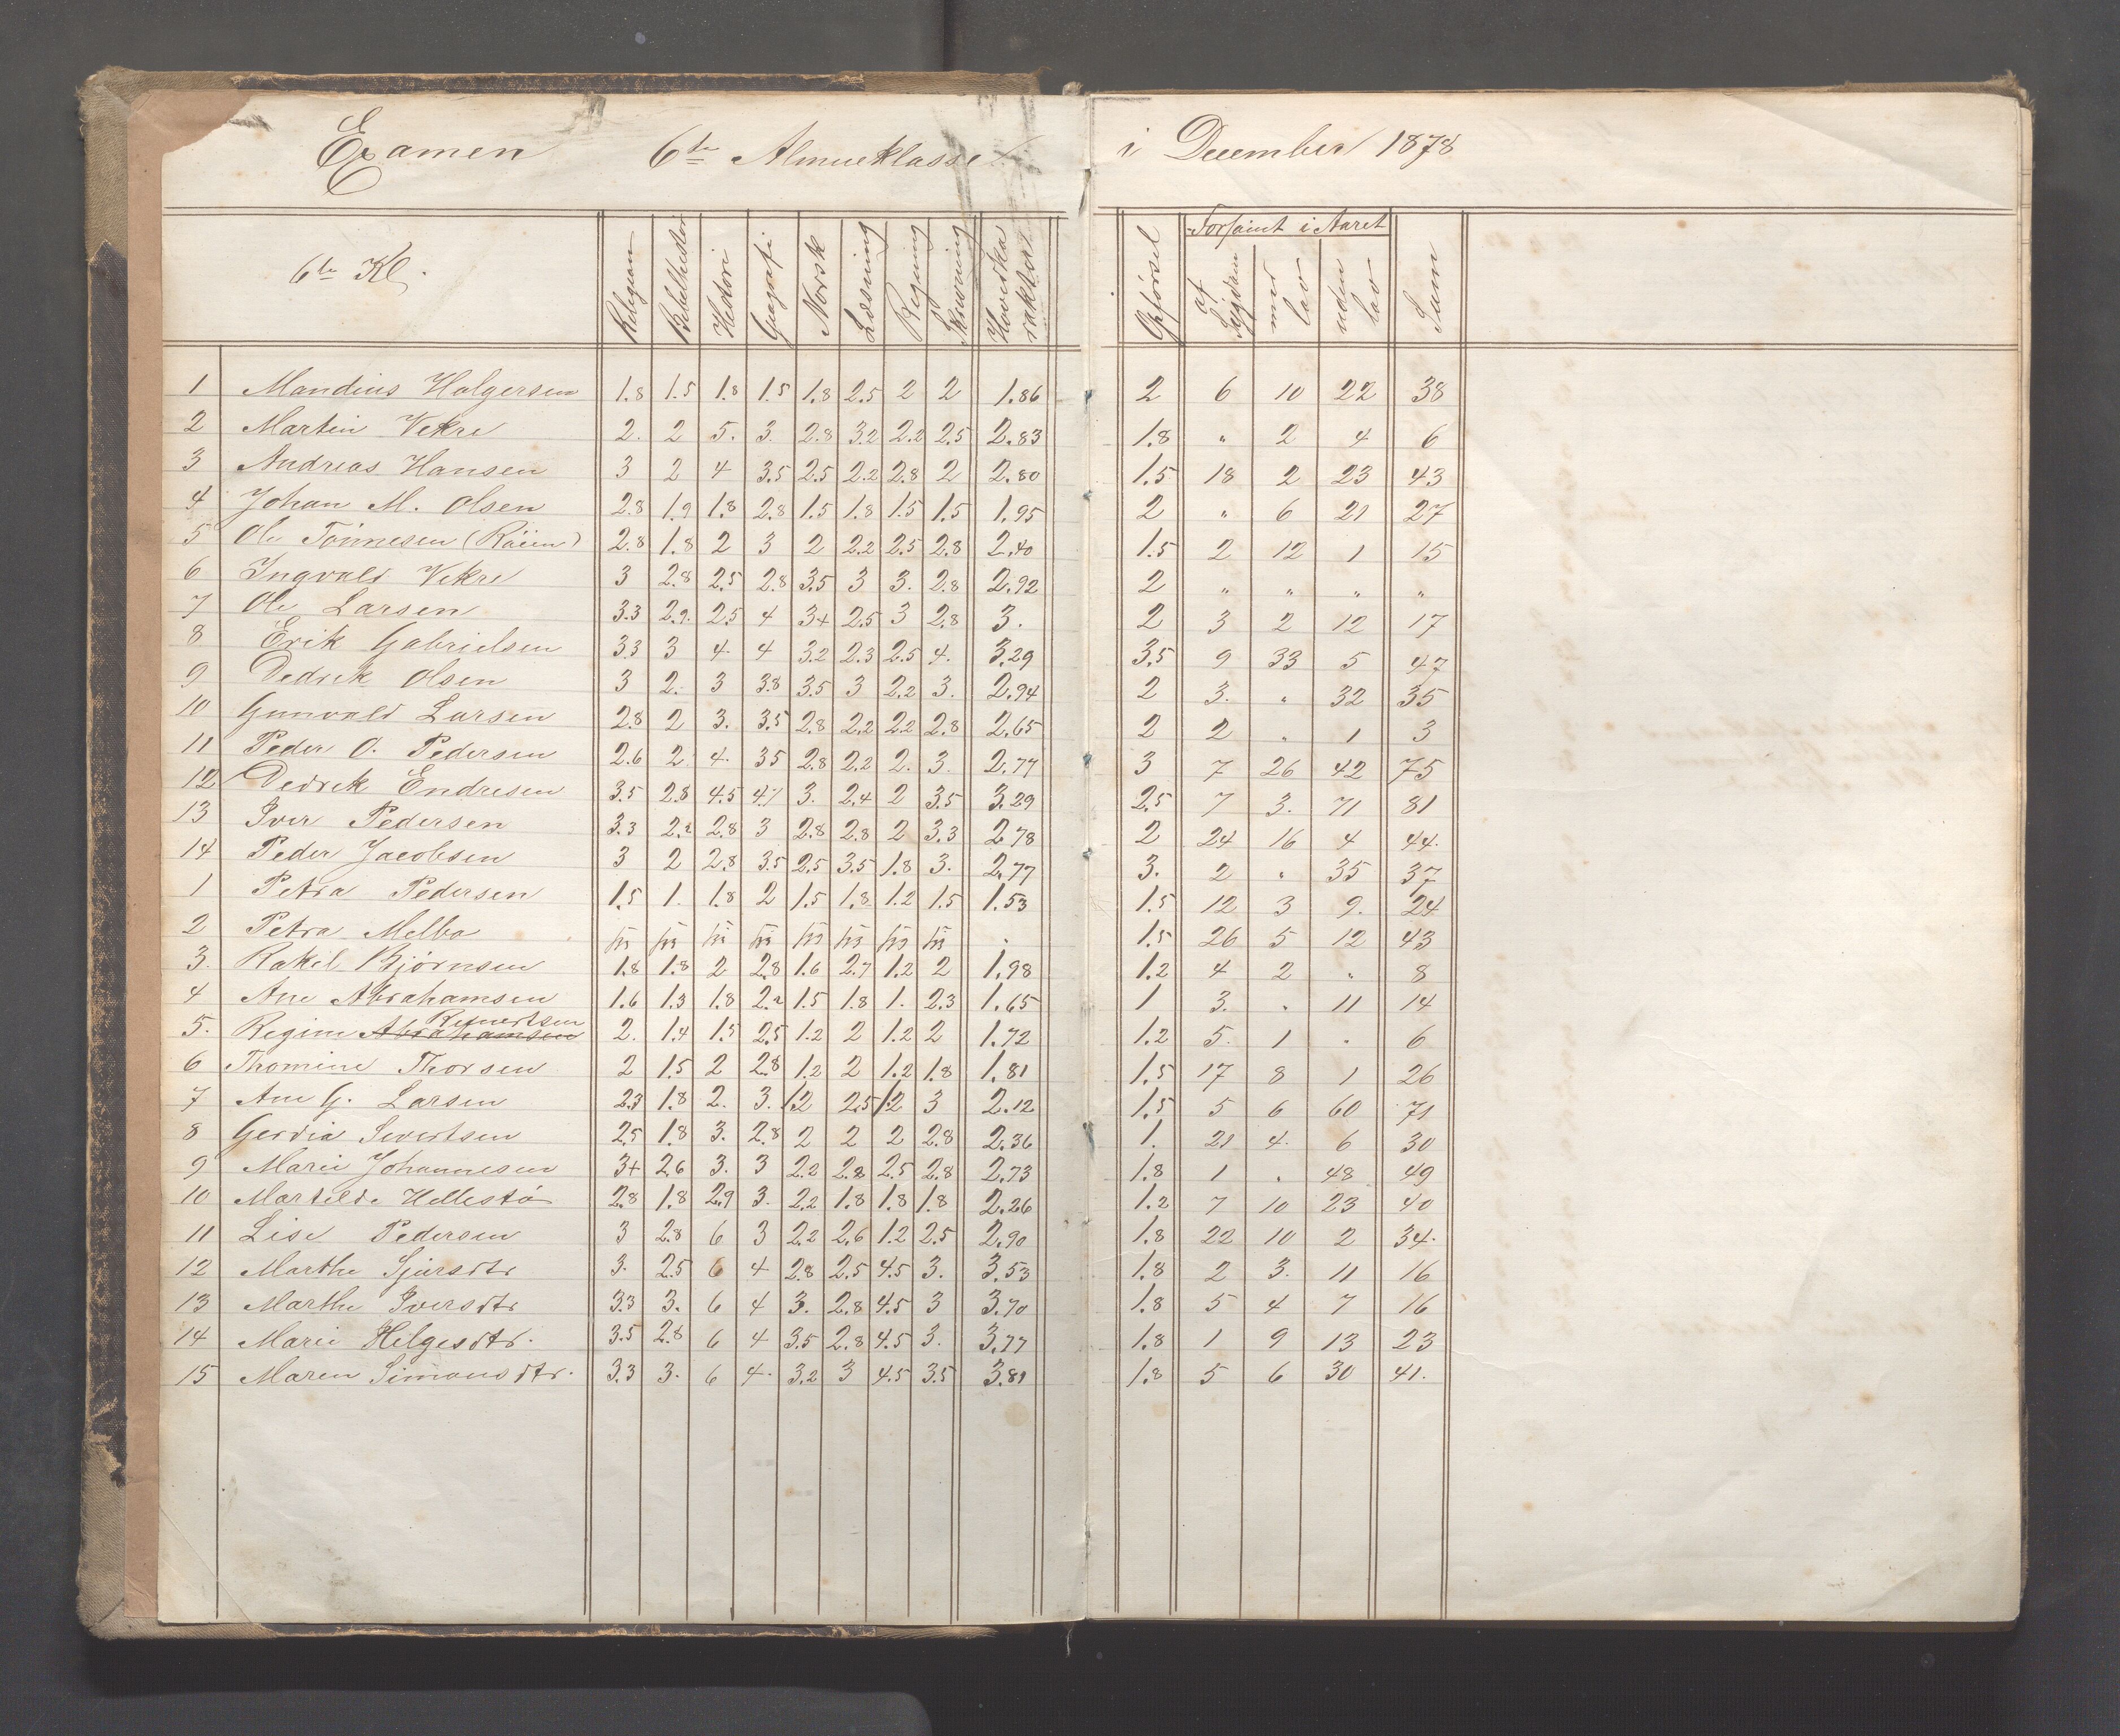 Examen 6te Almueklasse i December 1878
6te Kl. Religion Bibelhistor Historie Geografi Norsk Læsning Regning Skrivning Hovedka rakter Opførsel Forsømt i Aaret af Sygdom med Lov uden Lov Sum
1 Mandius Holgersen 1.8 1.5 1.8 1.5 1.8 2.5 2 2 1.86 2 6 10 22 38
2 Martin Vikre 2. 2 5. 3. 2.8 3.2 2.2 2.5 2.83 1.8 " 2 4 6
3 Andreas Hansen 3 2 4 3.5 2.5 2.2 2.8 2 2.80 1.5 18 2 23 43
4 Johan M. Olsen 2.8 1.9 1.8 2.8 1.5 1.8 1.5 1.5 1.95 2 " 6 21 27
5 Ole Tönnesen (Röien) 2.8 1.8 2 3 2 2.2 2.5 2.8 2.40 1.5 2 12 1 15
6 Ingvald Vikre 3 2.8 2.5 2.8 3.5 3 3. 2.8 2.92 2 " " " "
7 Ole Larsen 3.3 2.9. 2.5 4 3+ 2.5 3 2.8 3. 2 3 2 12 17
8 Erik Gabrielsen 3.3 3 4. 4 3.2 2.3 2.5 4. 3.29 3.5 9 33 5 47
9 Dedrik Olsen 3 2. 3 3.8 3.5 3 2.2 3. 2.94 2 3. " 32 35
10 Gunvald Larsen 2.8 2 3. 3.5 2.8 2.2 2.2 2.8 2.65 2 2 " 1 3
11 Peder O. Pedersen 2.6 2. 4. 3.5 2.8 2.2 2. 3. 2.77 3 7 26 42 75
12 Dedrik Endresen 3.5 2.8 4.5 4.7 3. 2.4 2 3.5 3.29 2.5 7 3. 71 81
13 Iver Pedersen 3.3 2.2 2.8 3 2.8 2.8 2 3.3 2.78 2 24 16 4 44.
14 Peder Jacobsen 3 2 2.8 3.5 2.5 3.5 1.8 3. 2.77 3. 2 " 35 37
1 Petra Pedersen 1.5 1. 1.8 2 1.5 1.8 1.2 1.5 1.53 1.5 12 3 9. 24
2 Petra Melbo . 1.5 26 5 12 43
3. Rakel Bjørnsen 1.8 1.8 2 2.8 1.6 2.7 1.2 2 1.98 1.2 4 2 " 8
4 Ane Abrahamsen 1.6 1.3 1.8 2.2 1.5 1.8 1. 2.3 1.65 1 3. " 11 14
5. Regine Abrahamsen Reinertsen 2. 1.4 1.5 2.5 1.2 2 1.2 2 1.72 1.2 5. 1 " 6
6 Thomine Thorsen 2 1.5 2 2.8 1.2 2 1.2 1.8 1.81 1.5 17 8 1 26
7 Ane G. Larsen 2.3 1.8 2. 3. 1.2 2.5 1.2 3 2.12 1.5 5 6 60 71
8 Gerdia Sivertsen 2.5 1.8 3. 2.8 2 2 2 2.8 2.36 1. 21 4. 6 30
9 Marie Johannesen 3+ 2.6 3. 3 2.2 2.8 2.5 2.8 2.73 1.8 1 " 48 49
10 Martilde Hellestö 2.8 1.8 2.9 3. 2.2 1.8 1.8 1.8 2.26 1.2 7 10 23 40
11 Lise Pedersen 3 2.8 6 3 2.2 2.6 1.2 2.5 2.90 1.8 22 10 2 34.
12 Marthe Sjursdtr 3. 2.5 6 4 2.8 2.5 4.5 3. 3.53 1.8 2 3. 11 16
13 Marthe Iversdtr 3.3 3. 6 4 3. 2.8 4.5 3 3.70 1.8 5 4 7 16
14 Marie Helgesdtr. 3.5 2.8 6 4 3.5 2.8 4.5 3. 3.77 1.8 1 9 13 23
15 Maren Simonsdtr. 3.3 3. 6 4. 3.2 3 4.5 3.5 3.81 1.8 5 6 30 41.